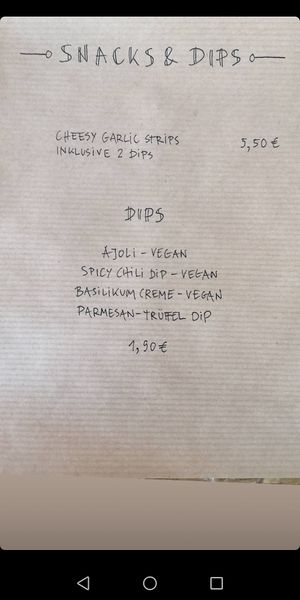 SNACKS & DIPS
CHEESY GARLIC STRIPS 5,50 €
INKLUSIVE 2 DIPS
DIPS
AJOLI - VEGAN
SPICY CHILI DIP - VEGAN
BASILIKUM CREME - VEGAN
PARMESAN-TRÜFFEL DIP
1,90 €